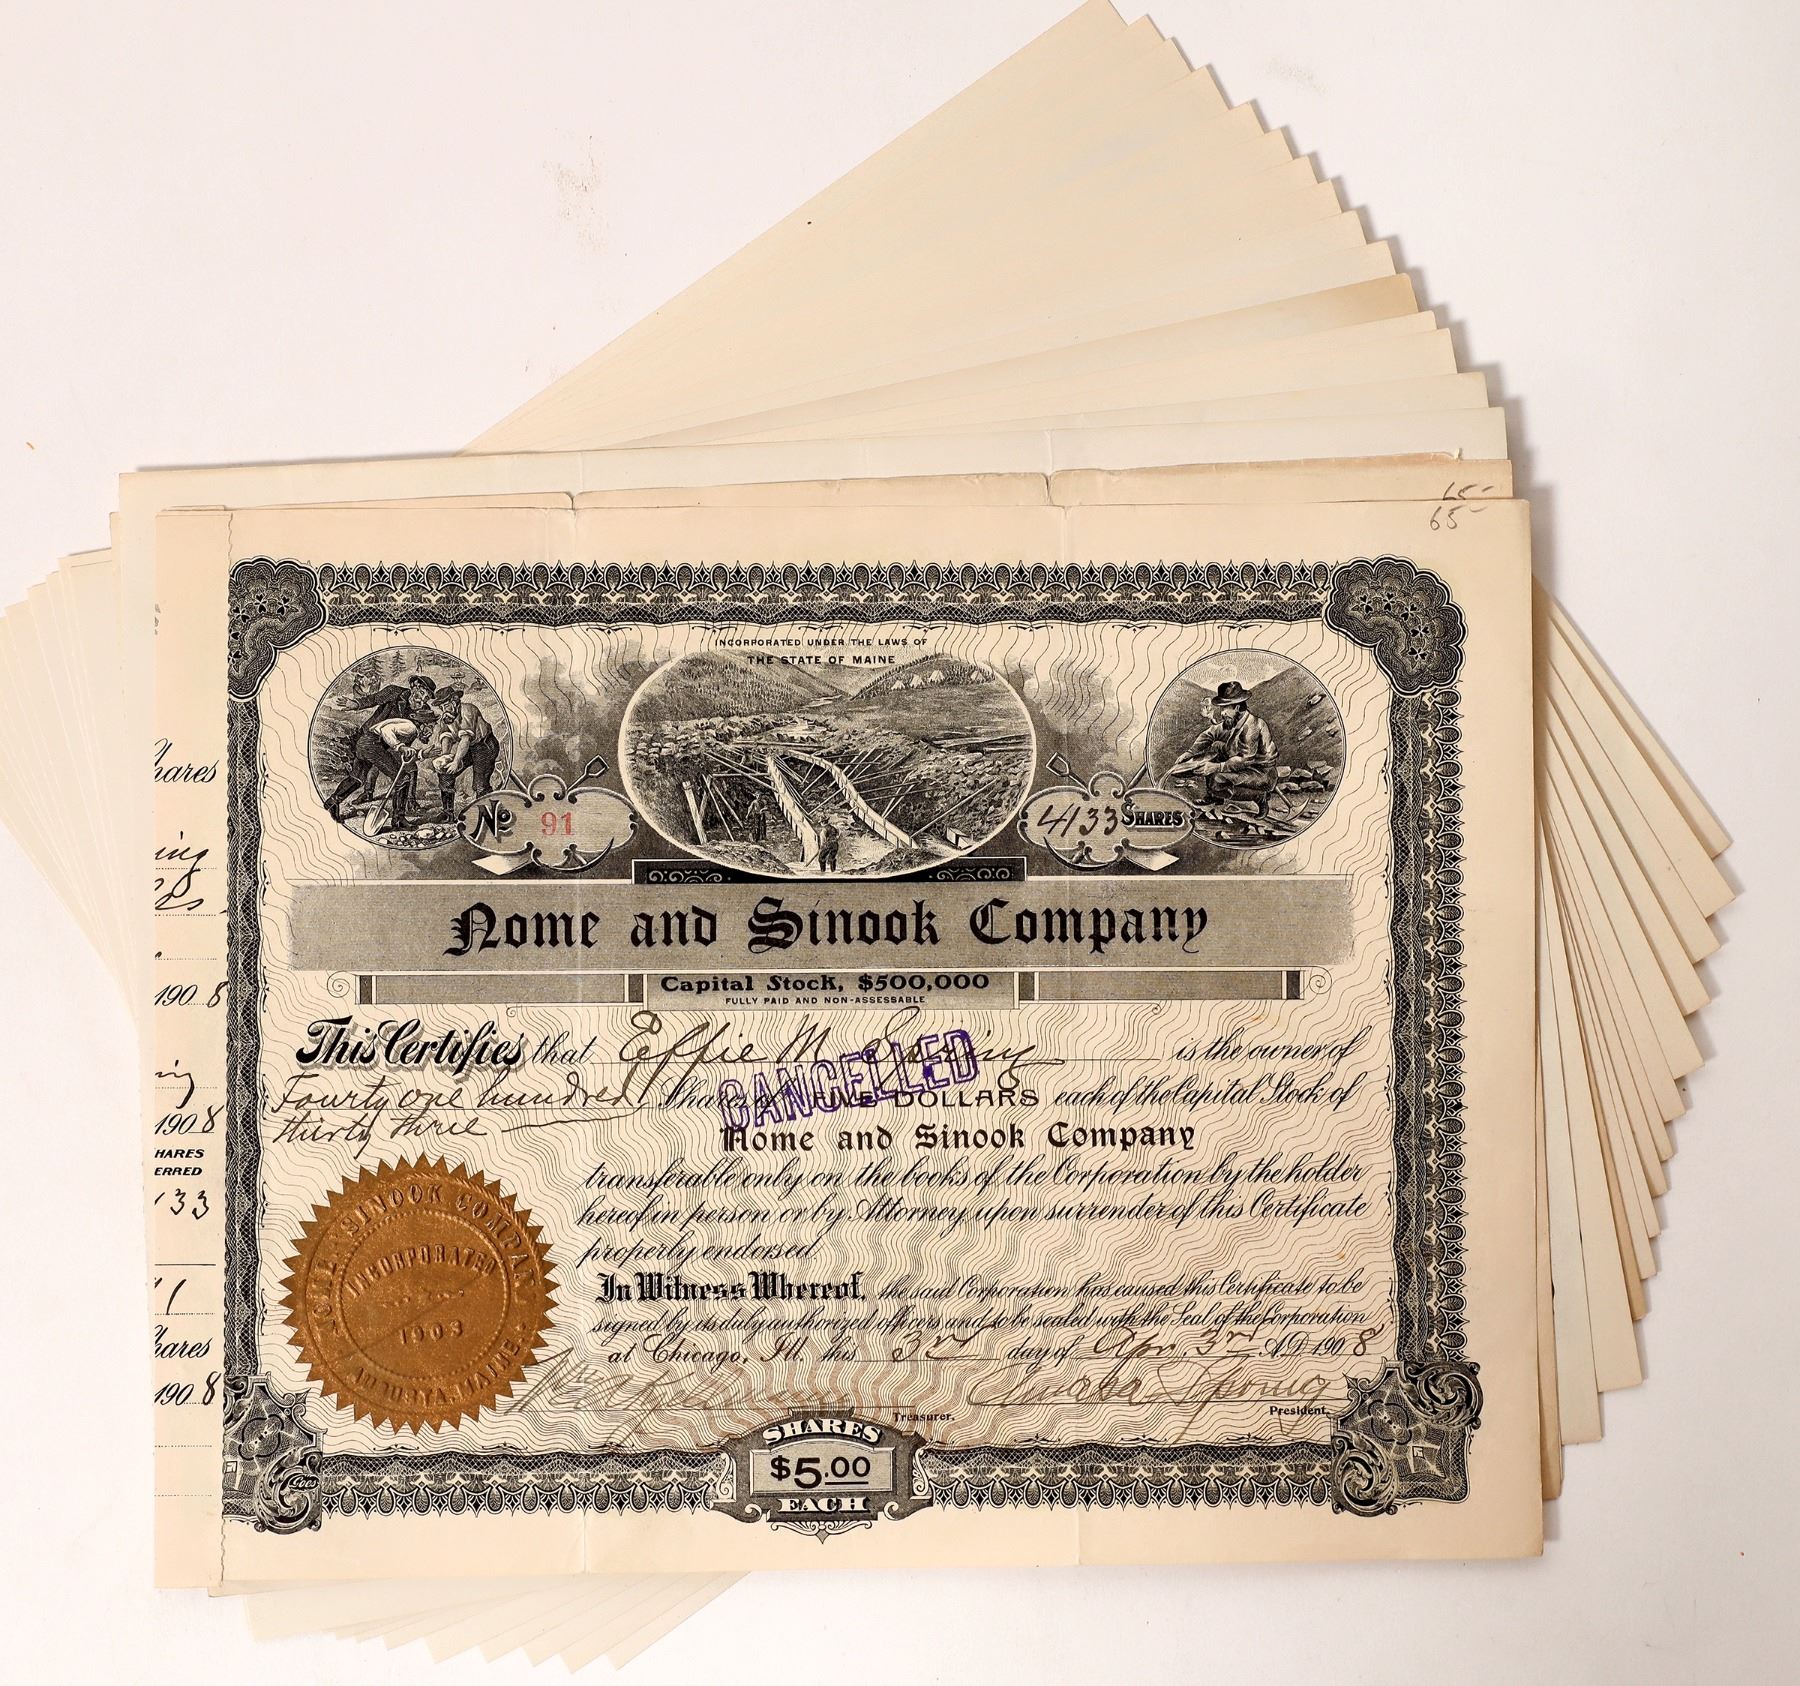 65
65
INCORPORATED UNDER THE LAWS OF
THE STATE OF MAINE
No 91
4133 SHARES
Nome and Sinook Company
Capital Stock, $500,000
FULLY PAID AND NON-ASSESSABLE
This Certifies that Effie M. Spring is the owner of
Fourty one hundred Shares of FIVE DOLLARS each of the Capital Stock of
thirty three
CANCELLED
Nome and Sinook Company
transferable only on the books of the Corporation by the holder
hereof in person or by Attorney upon surrender of this Certificate
properly endorsed
In Witness Whereof, the said Corporation has caused this Certificate to be
signed by its duly authorized officers and to be sealed with the Seal of the Corporation
at Chicago, Ill. this 3rd day of Apr. 3rd A.D. 1908
Treasurer.
Amasa Spring
President.
SHARES
$5.00
EACH
SINOOK COMPANY
INCORPORATED
1903
AUGUSTA, MAINE.
hares
ing
1908
ing
1908
HARES
ERRED
133
hares
1908